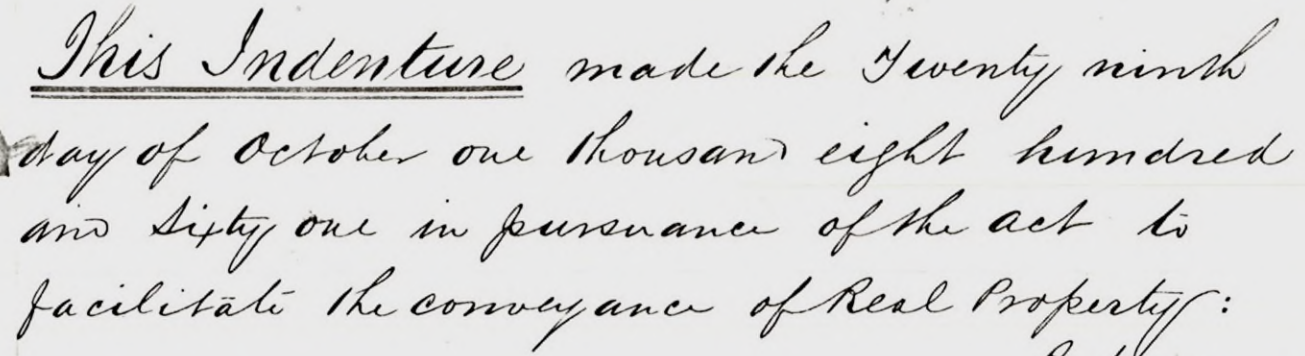 This Indenture made the Twenty ninth
day of October one thousand eight hundred
and Sixty one in pursuance of the act to
facilitate the conveyance of Real Property: